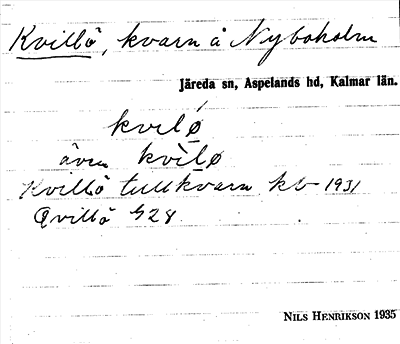 Kvillö, kvarn å Nyboholm
Järeda sn, Aspelands hd, Kalmar län.
kvilø
även kvìlø
Kvillö tullkvarn kb 1931
Qvillö G28
NILS HENRIKSON 1935